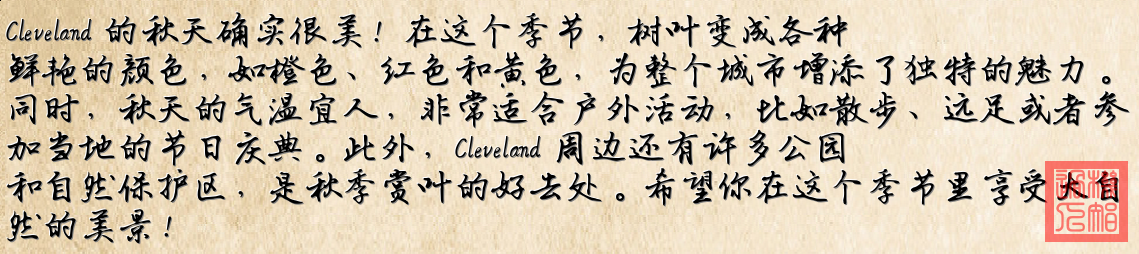 Cleveland 的秋天确实很美！在这个季节，树叶变成各种
鲜艳的颜色，如橙色、红色和黄色，为整个城市增添了独特的魅力。
同时，秋天的气温宜人，非常适合户外活动，比如散步、远足或者参
加当地的节日庆典。此外，Cleveland 周边还有许多公园
和自然保护区，是秋季赏叶的好去处。希望你在这个季节里享受大自
然的美景！